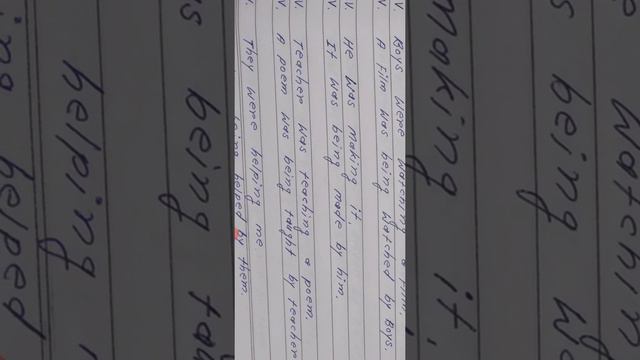 V. Boys were watching a film.
V. A film was being watched by Boys.
V. He was making it.
V. It was being made by him.
V. Teacher was teaching a poem.
V. A poem was being taught by teacher
V. They were helping me.
being helped by them.
making it.
being
being
helping
helped